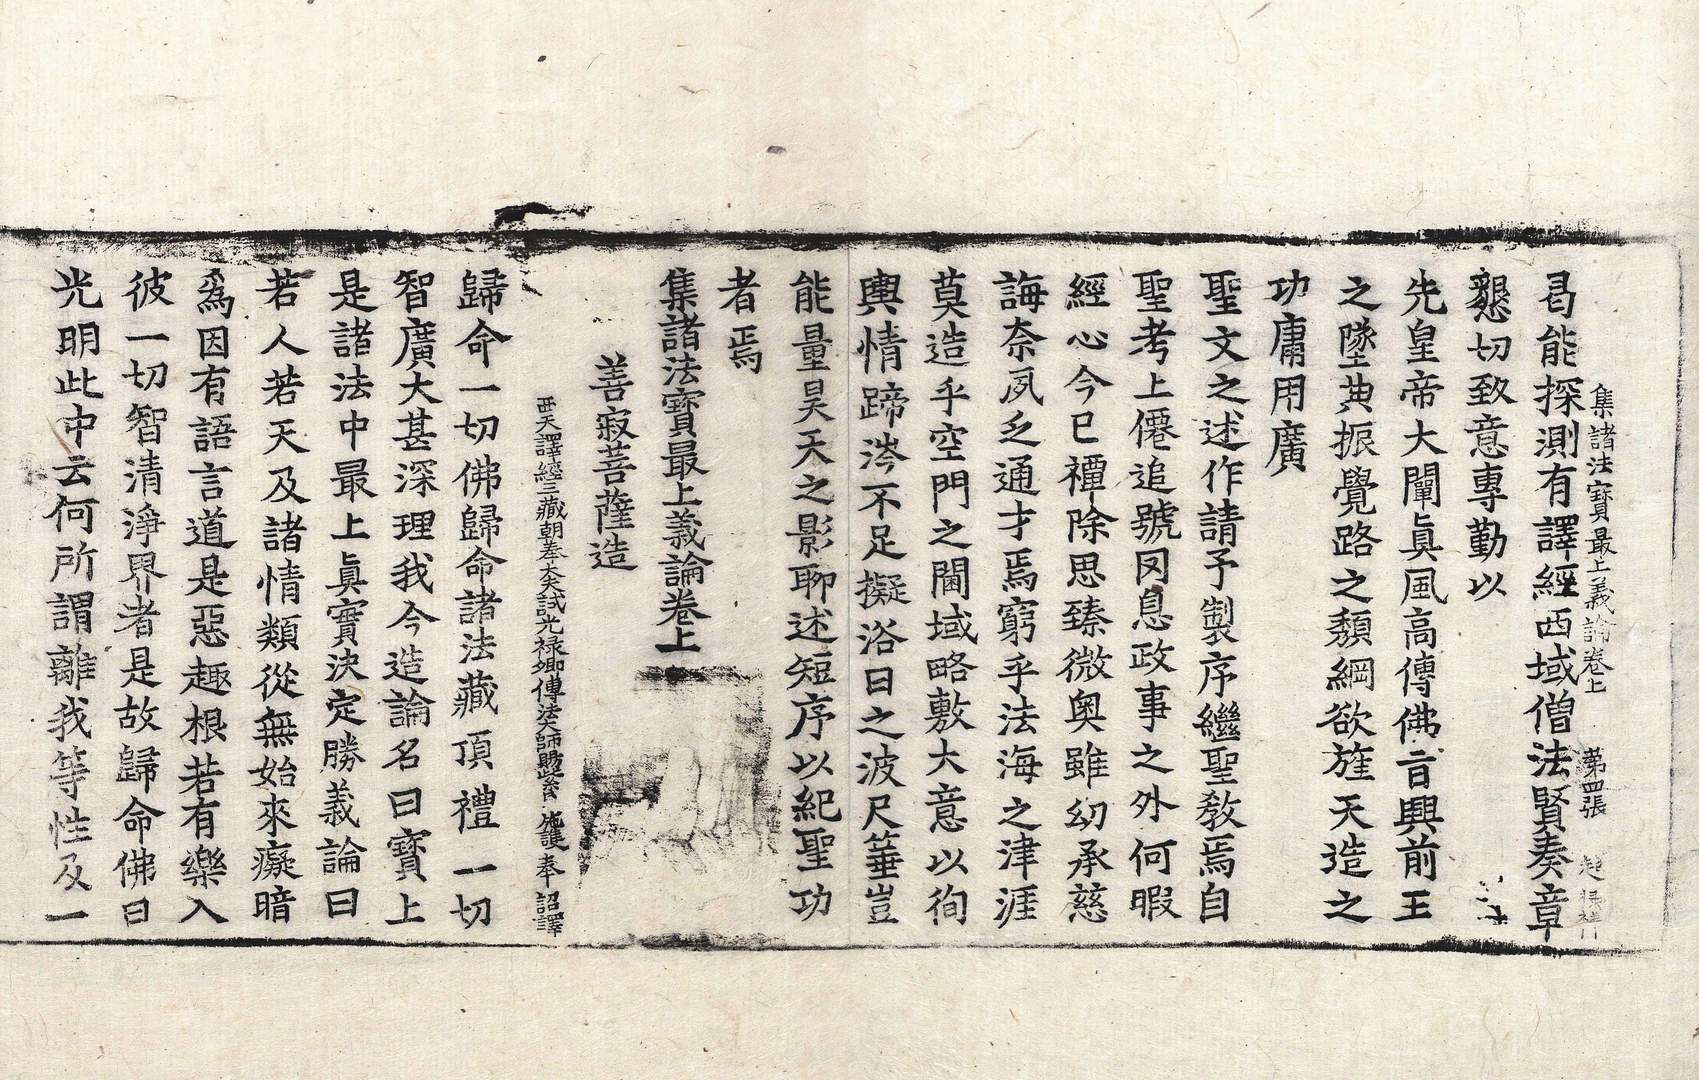 集諸法寶最上義論卷上 第四張
曷能探測有譯經西域僧法賢奏章
懇切致意專勤以
先皇帝大闡眞風高傳佛旨興前王
之墜典振覺路之頹綱欲旌天造之
功庸用廣
聖文之述作請予製序繼聖教焉自
聖考上僊追號罔息政事之外何暇
經心今巳禫除思臻微奧雖幼承慈
誨奈夙乏通才焉窮乎法海之津涯
莫造乎空門之閫域略敷大意以徇
輿情蹄涔不足擬浴日之波尺箠豈
能量昊天之影聊述短序以紀聖功
者焉
集諸法寶最上義論卷上
善寂菩薩造
西天譯經三藏朝奉大夫試光祿卿傳法大師賜紫臣施護奉 詔譯
歸命一切佛歸命諸法藏頂禮一切
智廣大甚深理我今造論名曰寶上
是諸法中最上眞實決定勝義論曰
若人若天及諸情類從無始來癡暗
爲因有語言道是惡趣根若有樂入
彼一切智清淨界者是故歸命佛日
光明此中云何所謂離我等性及一